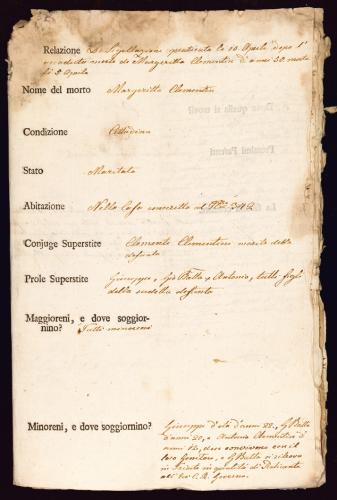 Relazione Di Sigillazione praticata li 10 Aprile dopo l'
morte di Margaritta Clementini d'anni 50 morta
li 9 Aprile
Nome del morto Margaritta Clementini
Condizione Cittadina
Stato Maritata
Abitazione Nella Casa al N.ro 342
Conjuge Superstite Clemente Clementini marito della
defonta
Prole Superstite Giuseppe, Gio Batta e Antonio, tutti figli
della sudetta defonta
Maggioreni, e dove soggior-
nino? Tutti minoreni
Minoreni, e dove soggiornino? Giuseppe d'età d'anni 22, G Batta
d'anni 20, e Antonio Clementini d'
anni 12, due convivono con il
loro Genitore, e G Batta si ritrova
in Trieste in qualità di Praticante
C. R. Governo.